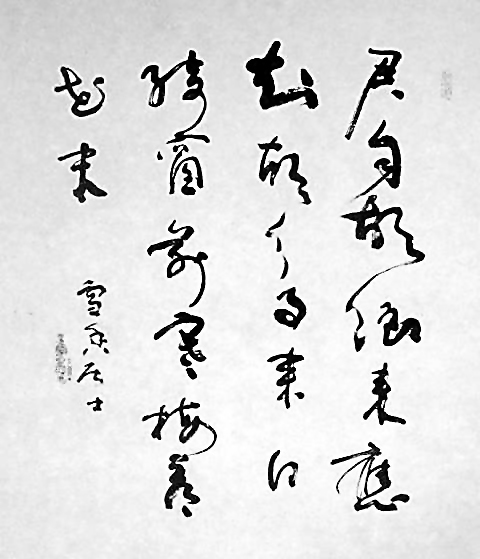 君自故鄉来應
知故鄉事来日
綺窗前寒梅著
花未
雪香居士